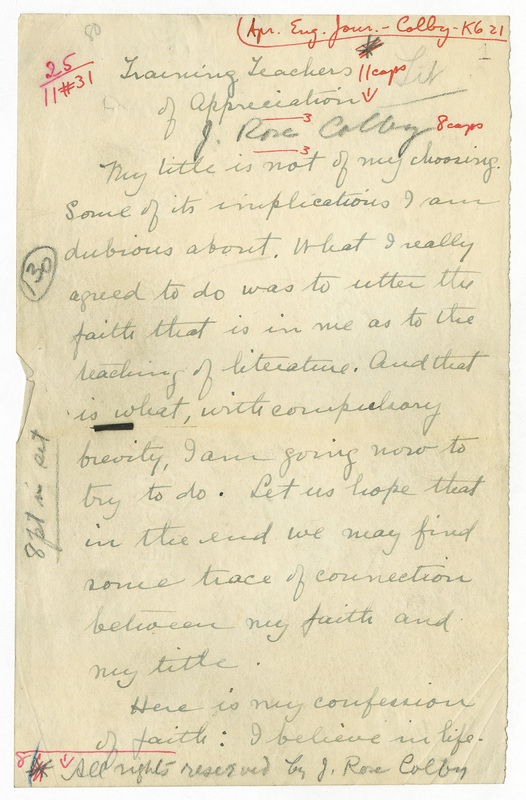 (Apr. Eng. Jour. - Colby - K6 21
80
1
25
11#31
Training Teachers 11 caps
of Appreciation
3
J. Rose Colby 8 caps
3
My title is not of my choosing.
Some of its implications I am
dubious about. What I really
30
agreed to do was to utter the
faith that is in me as to the
teaching of literature. And that
is what, with compulsory
brevity, I am going now to
try to do. Let us hope that
8 pt in
in the end we may find
some trace of connection
between my faith and
my title.
Here is my confession
of faith: I believe in life.
8
* All rights reserved by J. Rose Colby